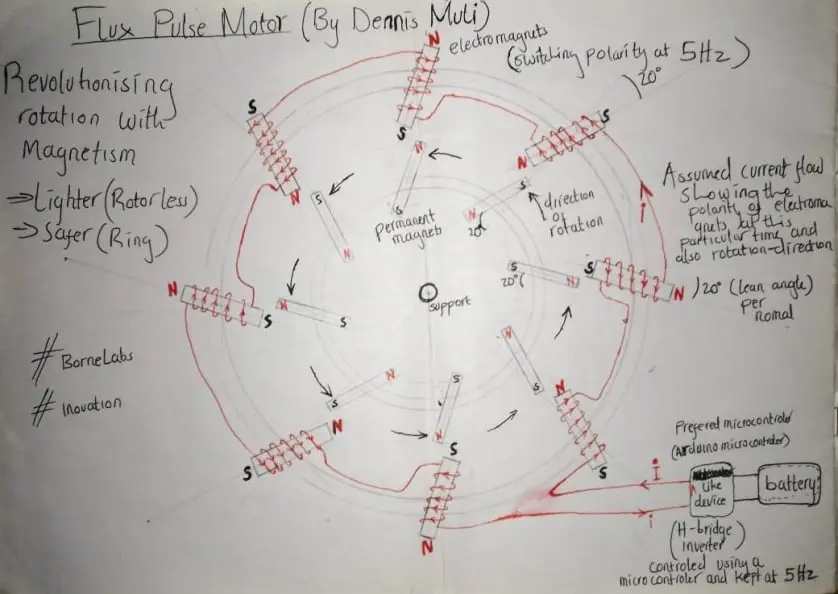 Flux Pulse Motor (By Dennis Muli)
electromagnets
(switching polarity at 5Hz)
20°
Revolutionising
rotation with
Magnetism
⇒Lighter(Rotorless)
⇒Safer(Ring)
N
S
S
N
S
N
N
S
permanent
magnets
N
S
S
N
20°
direction
of
rotation
i
Assumed current flow
showing the
polarity of electroma
gnets at this
particular time and
also rotation-direction
S
N
20° (lean angle)
per
nomal
S
N
20°(
support
N
S
N
S
#BorneLabs
#Inovation
N
S
S
N
N
S
S
N
N
S
N
S
S
N
Prefered microcontroler
(Arduino microcontroler)
i
i
Like
device
battery
(H-bridge
inverter)
controled using a
microcontroler and kept at 5Hz